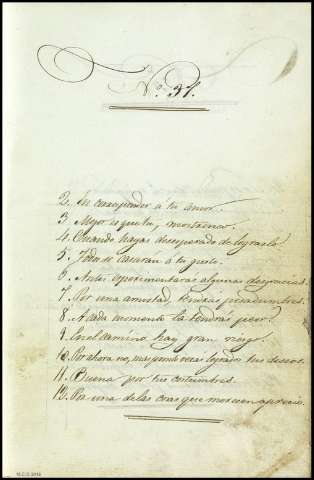 No. 37.
2. In corresponder a tu amor.
3 Mejor es que tu, mantenera.
4. Cuando hayas desesperado de lograrlo.
5. Todos se casarán á tu gusto.
6. Antes experimentarás algunas desgracias.
7. Por una amistad, tendrás pesadumbres.
8. A cada momento la tendrás peor.
9. En el camino hay gran riesgo.
10. Por ahora no, mas pronto veras logrados tus deseos.
11. Buena por tus costumbres.
12. Por una de las cosas que mas en aprecio.